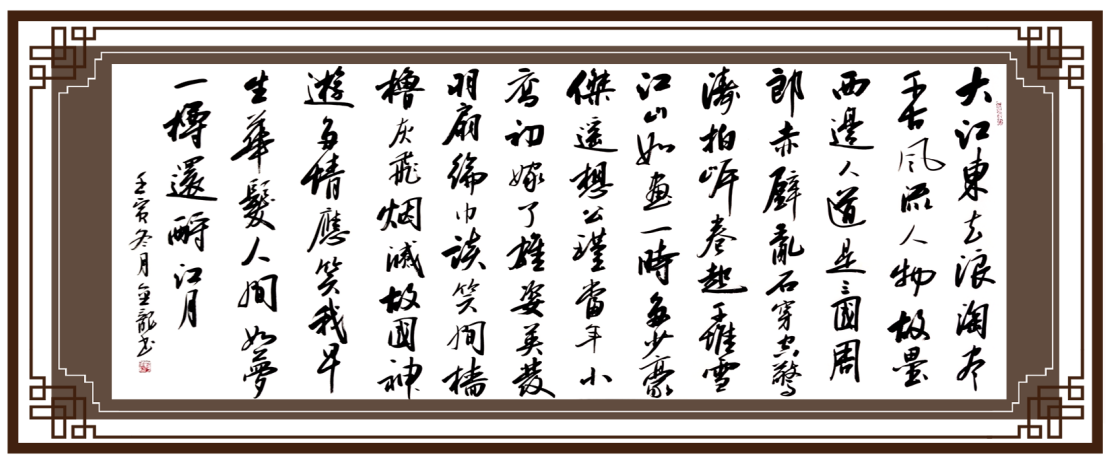 大江東去浪淘尽
千古風流人物故壘
西邊人道是三國周
郎赤壁亂石穿空驚
濤拍岸卷起千堆雪
江山如畫一時多少豪
傑遥想公瑾當年小
喬初嫁了雄姿英發
羽扇綸巾談笑間檣
櫓灰飛烟滅故國神
遊多情應笑我早
生華髮人間如夢
一樽還酹江月
壬寅冬月金龍書